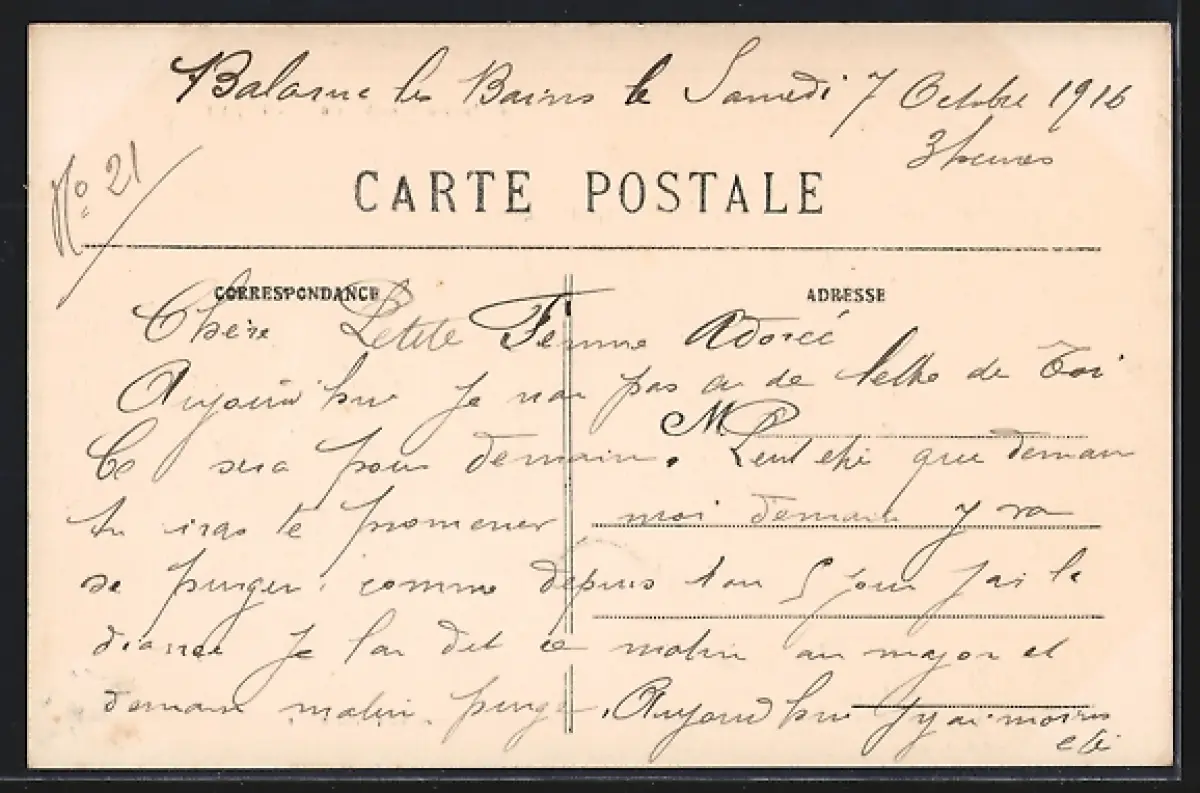 Balaruc les Bains le Samedi 7 Octobre 1916
3 heures
No. 21
CARTE POSTALE
CORRESPONDANCE
ADRESSE
Chère Petite Femme Adorée
Aujourd hui Je nai pas eu de lettre de Toi
M
Ce sera pour demain. Peut etre que demain
tu iras te promener moi demain y va
se purger. comme depuis 4 ou 5 jour Jai la
diarree Je lai dit ce matin au major et
demain matin purge. Aujourd hui Jy ai moins
été